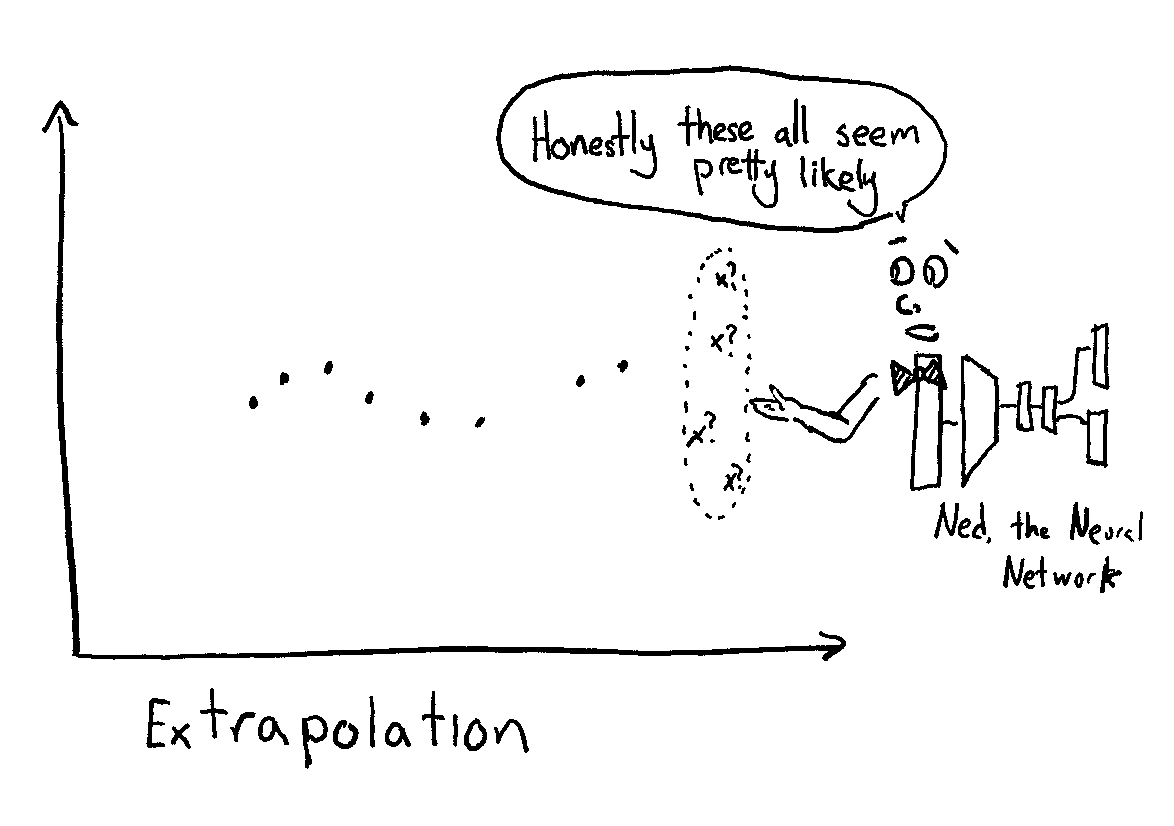 Honestly these all seem
pretty likely
x?
x?
x?
x?
Ned, the Neural
Network
Extrapolation